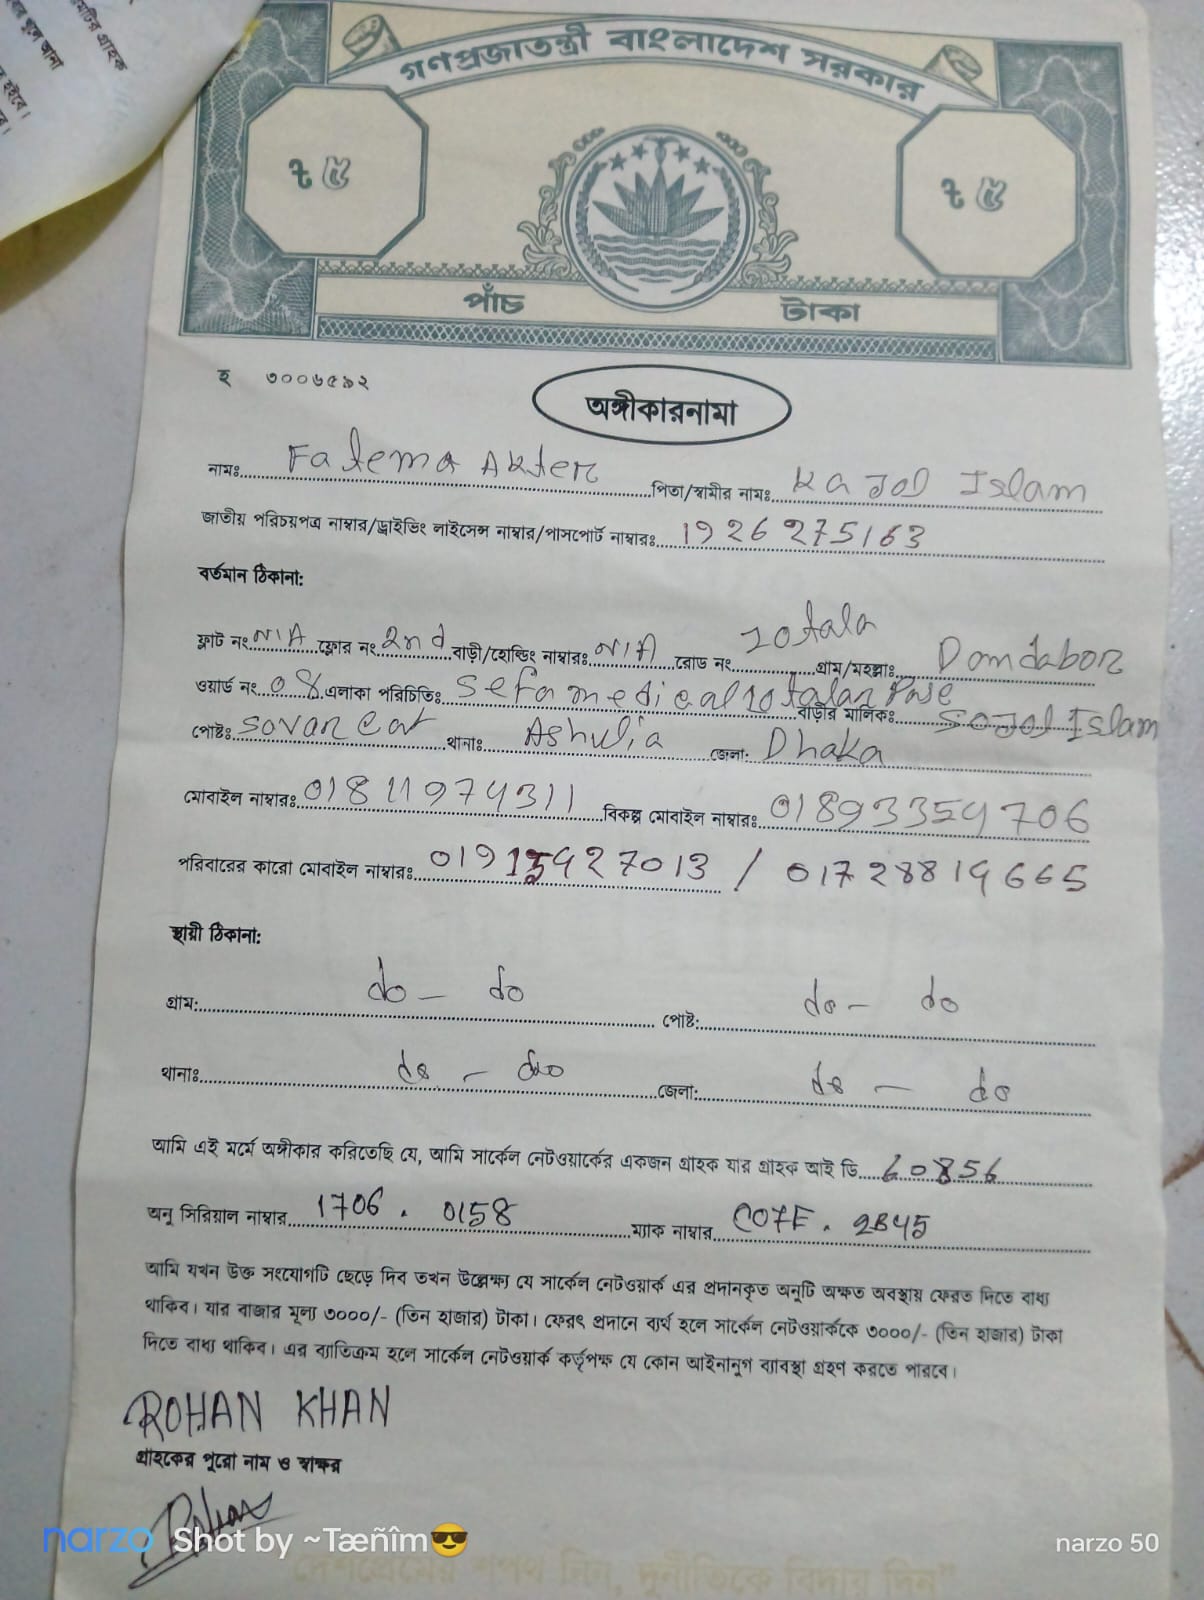 মটির গ্রাহক
গণপ্রজাতন্ত্রী বাংলাদেশ সরকার
৳ ৫ ৳ ৫
পাঁচ টাকা
হ ৩০০৬৫৯২
অঙ্গীকারনামা
নামঃ Fatema Akter পিতা/স্বামীর নামঃ Kajol Islam
জাতীয় পরিচয়পত্র নাম্বার/ড্রাইভিং লাইসেন্স নাম্বার/পাসপোর্ট নাম্বারঃ 1926275163
বর্তমান ঠিকানা:
ফ্লাট নং N/A ফ্লোর নং 2nd বাড়ী/হোল্ডিং নাম্বারঃ N/A রোড নং 10tala গ্রাম/মহল্লাঃ Dendabor
ওয়ার্ড নং 08 এলাকা পরিচিতিঃ Sefa medical 10 talar Pase বাড়ীর মালিকঃ Sojol Islam
পোষ্টঃ Sovar Cat থানাঃ Ashulia জেলা: Dhaka
মোবাইল নাম্বারঃ 01811974311 বিকল্প মোবাইল নাম্বারঃ 01893354706
পরিবারের কারো মোবাইল নাম্বারঃ 01915927013 / 01728819665
স্থায়ী ঠিকানা:
গ্রাম: do - do পোষ্ট: do - do
থানাঃ do - do জেলা: do - do
আমি এই মর্মে অঙ্গীকার করিতেছি যে, আমি সার্কেল নেটওয়ার্কের একজন গ্রাহক যার গ্রাহক আই ডি 60856
অনু সিরিয়াল নাম্বার 1706 . 0158 ম্যাক নাম্বার C07F . 2B45
আমি যখন উক্ত সংযোগটি ছেড়ে দিব তখন উল্লেক্ষ্য যে সার্কেল নেটওয়ার্ক এর প্রদানকৃত অনুটি অক্ষত অবস্থায় ফেরত দিতে বাধ্য
থাকিব। যার বাজার মূল্য ৩০০০/- (তিন হাজার) টাকা। ফেরৎ প্রদানে ব্যর্থ হলে সার্কেল নেটওয়ার্ককে ৩০০০/- (তিন হাজার) টাকা
দিতে বাধ্য থাকিব। এর ব্যাতিক্রম হলে সার্কেল নেটওয়ার্ক কর্তৃপক্ষ যে কোন আইনানুগ ব্যাবস্থা গ্রহণ করতে পারবে।
ROHAN KHAN
গ্রাহকের পুরো নাম ও স্বাক্ষর
Rohan
narzo Shot by ~Tæñîm😎 narzo 50
দেশপ্রেমের শপথ নিন, দুর্নীতিকে বিদায় দিন"